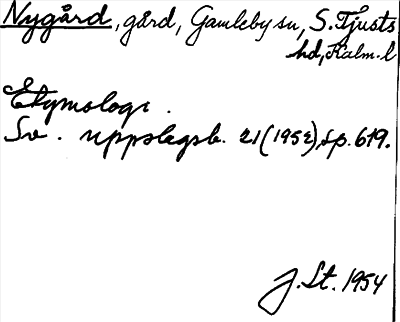 Nygård, gård, Gamleby sn, S. Tjusts
hd, Kalm. l
Etymologi.
Sv. uppslagsb. 21 (1952), sp. 619.
J. St. 1954